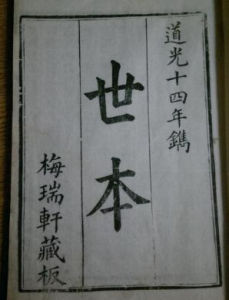 道光十四年鐫
世本
梅瑞軒藏板